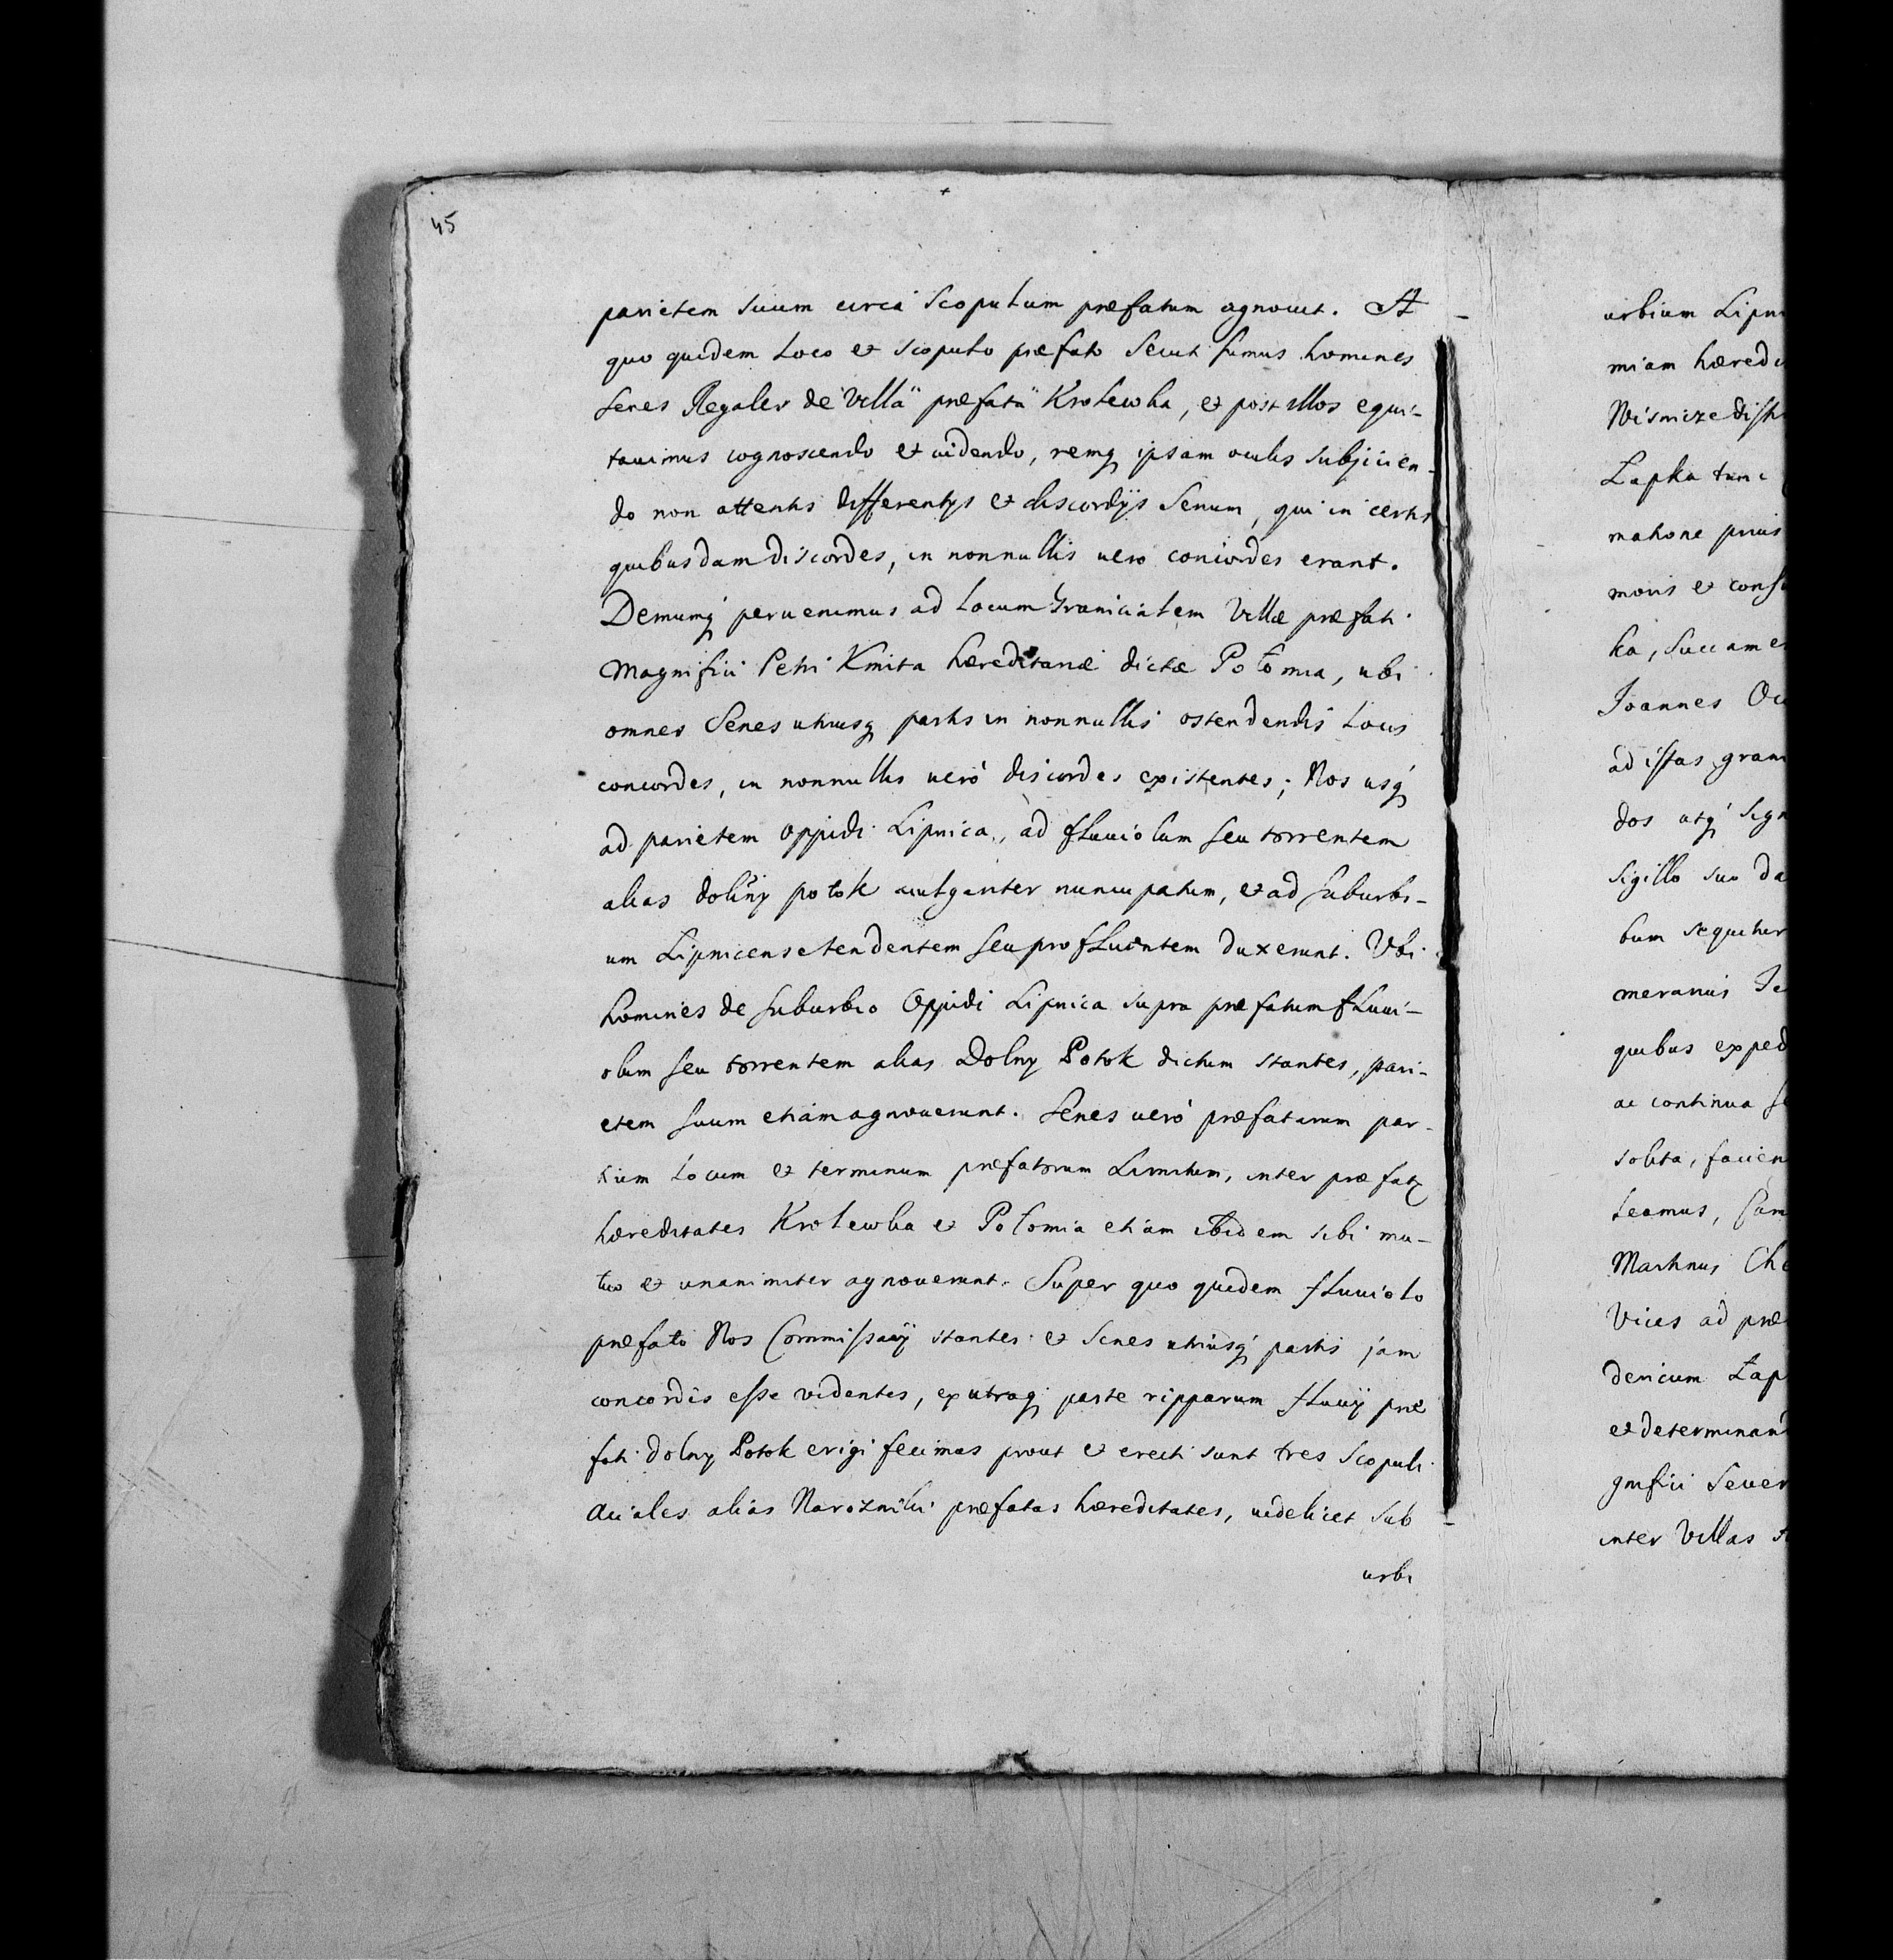 45
parietem suum circa Scopulum præfatum agnovit. A
quo quidem Loco et scopulo præfato Secuti sumus homines
Senes Regales de Villa præfata Krolewka, et post illos equi-
tauimus cognoscendo et uidendo, remq ipsam oculis subjicien-
do non attentis differentijs et discordijs Senum, qui in certis
quibusdam discordes, in nonnullis uero concordes erant.
Demumq peruenimus ad Locum Granicialem Villæ præfati
Magnifici Petri Kmita hæreditariæ dictæ Połomia, ubi
omnes Senes utriusq partis in nonnullis ostendendis Locis
concordes, in nonnullis uerò discordes existentes; Nos usq
ad parietem oppidi Lipnica, ad fluuiolum seu torrentem
alias dolny potok uulgariter nuncupatum, et ad suburbi-
um Lipnicense tendentem seu profluentem duxerunt. Vbi
homines de suburbio Oppidi Lipnica supra præfatum fluui-
olum seu torrentem alias Dolny Potok dictum stantes, pari-
etem suum etiam agnouerunt. Senes uerò præfatarum par-
tium Locum et terminum præfatorum Limitum, inter præfatas
hæreditates Krolewka et Połomia etiam ibidem sibi mu-
tuo et unanimiter agnouerunt. Super quo quidem fluuiolo
præfato Nos Commissarij stantes et Senes utriusq partis jam
concordes esse videntes, ex utraq parte ripparum fluuij præ
fati dolny Potok erigi fecimus prout et erecti sunt tres Scopuli
Aciales alias Narożniki præfatas hæreditates, uidelicet Sub
urbi
urbium Lipni
miam hæredi
Wismicze dist
Lapka tunc
matione prius
moris et cons
ka, succam
Joannes
ad istas gran
dos atq sign
sigillo suo da
bum sequitur
meranus
quibus exped
ac continua
solita, facien
teamus, Cam
Martinus Ch
Vices ad præ
dericum Łap
et determinan
gnifici Seuer
inter Villas